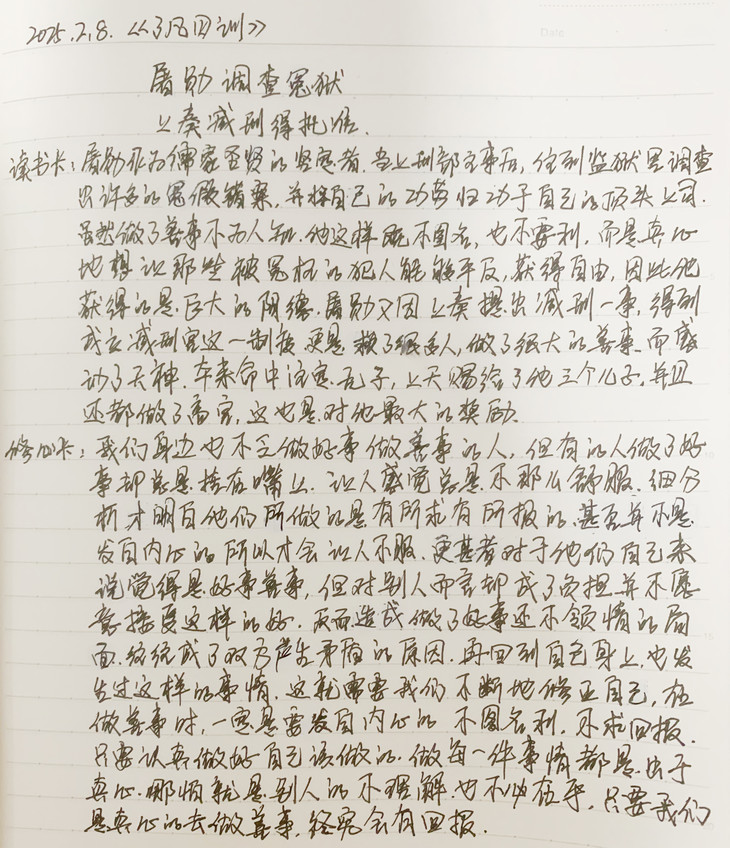 2025.2.8.《了凡四训》
屠勋调查冤狱
上奏减刑得批准.
读书卡:屠勋作为儒家圣贤的学者.当上刑部主事后,住到监狱里调查
出许多的冤假错案,并将自己的功劳归功于自己的顶头上司.
虽然做了善事不为人知.他这样既不图名,也不要利,而是真心
地想让那些被冤枉的犯人能够平反,获得自由,因此他
获得的是巨大的阴德.屠勋又因上奏提出减刑一事,得到
成立减刑官这一制度,更是救了很多人,做了很大的善事.而感
动了天神.本来命中注定无子,上天赐给了他三个儿子.并且
还都做了高官,这也是对他最大的奖励.
修心卡:我们身边也不乏做好事做善事的人,但有的人做了好
事却总是挂在嘴上.让人感觉总是不那么舒服.细分
析才明白他们所做的是有所求有所报的.甚至并不是
发自内心的所以才会让人不服.更甚者对于他们自己来
说觉得是好事善事,但对别人而言却成了负担并不愿
意接受这样的好.反而造成做了好事还不领情的局
面.统统成了双方产生矛盾的原因.再回到自己身上,也发
生过这样的事情.这就需要我们不断地修正自己,在
做善事时,一定是要发自内心的不图名利,不求回报.
只要认真做好自己该做的.做每一件事情都是出于
真心.哪怕就是别人的不理解.也不必在乎.只要我们
是真心的去做善事.终究会有回报.